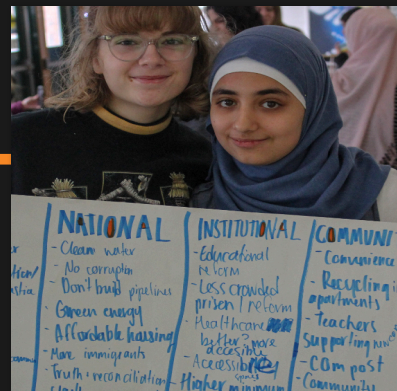 NATIONAL
- Clean water
- No corruption
- Don't build pipelines
- Green energy
- Affordable housing
- More immigrants
- Truth + reconciliation
INSTITUTIONAL
- Educational
reform
- Less crowded
prison / reform
- Healthcare
better? more
accesible
- Accessible
spaces
- Higher minimum
COMMUNI
- Convenience
- Recycling i
apartments
- Teachers
supporting
- Compost
- Community